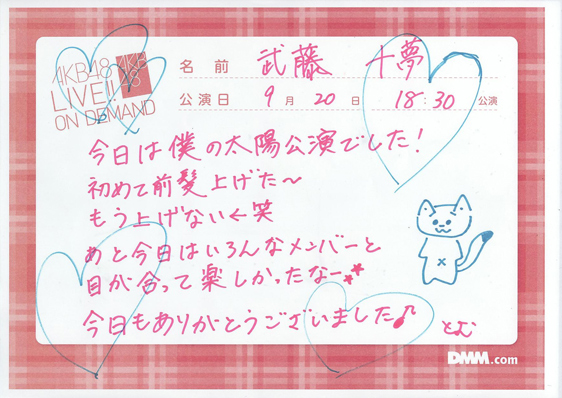 AKB48
LIVE!!
ON DEMAND
AKB
48
名前 武藤 十夢
公演日 9月20日 18:30公演
今日は僕の太陽公演でした!
初めて前髪上げた〜
もう上げない←笑
あと今日はいろんなメンバーと
目が合って楽しかったなー
今日もありがとうございました♪
とむ
DMM.com